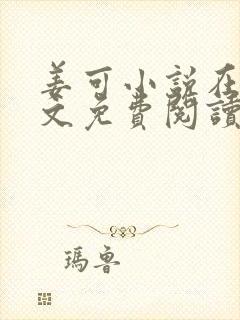 姜可小説在
文免費閱讀
瑪魯